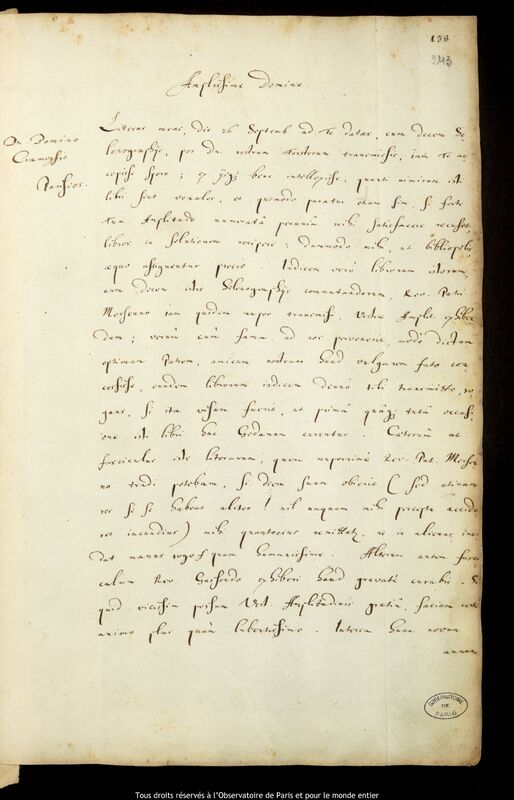 138
243
Amplissime Domine.
Dn. Domino
Parisios.
Literas meas, die 26 Septemb. ad Te datas, cum decem Se-
lenographijs, per Dn. nostrum transmissis, jam Te ac-
cepisse spero; ex ijsq; bene intellexisse, quanti nimirum isti
libri sint venales, et quomodo paratus etiam sim, si forte
Tua Amplitudo numerata pecunia mihi satisfacere recuset,
libros in solutionem recipere; dummodo mihi, ut bibliopolis
æquo assignentur precio. Indicem verò librorum istorum,
cum decem istis Selenographijs commutandorum, Rev. Patri
Mersenno jam quidem nuper transmisi, Vestræ Amplit. exhiben-
dum; verum cum fama ad nos pervenerit, modò dictum
optimum Patrem, amicum nostrum haud vulgarem fato con-
cessisse, eundem librorum indicem denuò tibi transmitto, ro-
gans, si ita visum fuerit, ut primâ quâq; datâ occasi-
one isti libri huc Gedanum curentur. Cæterum ut
fasciculus iste literarum, quem nuperrimè Rev. Pat. Mersen-
no tradi petebam, si diem suum obierit (sed utinam
res se se habeat aliter! nil unquam mihi percepta accide-
ret iucundius) mihi quantocius remittatur, ne in alienas inci-
dat manus rogo quam humanissimè. Alterum autem fasci-
culum Rev. Gassendo exhiberi haud gravatè curabis. Si
quid vicissim possum Vest. Amplitudinis gratiâ, faciam certè
animo plus quàm lubentissimo. Interim hunc novum
annum
OBSERVATOIRE
DE
PARIS
Tous droits réservés à l'Observatoire de Paris et pour le monde entier